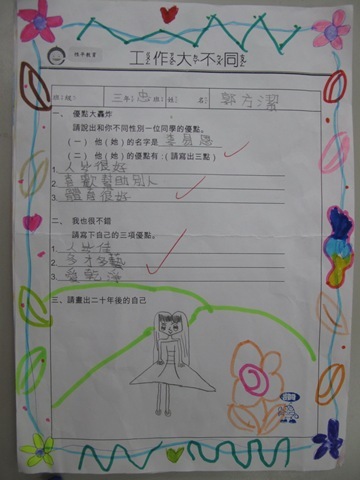 性平教育
工作大不同
班級: 三年忠班 姓名: 郭方潔
一、 優點大轟炸
請說出和你不同性別一位同學的優點。
(一) 他(她)的名字是
(二) 他(她)的優點有:(請寫出三點)
1. 人缘很好
2. 喜歡幫助別人
3. 體育很好
二、 我也很不錯
請寫下自己的三項優點。
1. 人缘佳
2. 多才多藝
3. 愛乾淨
三、請畫出二十年後的自己